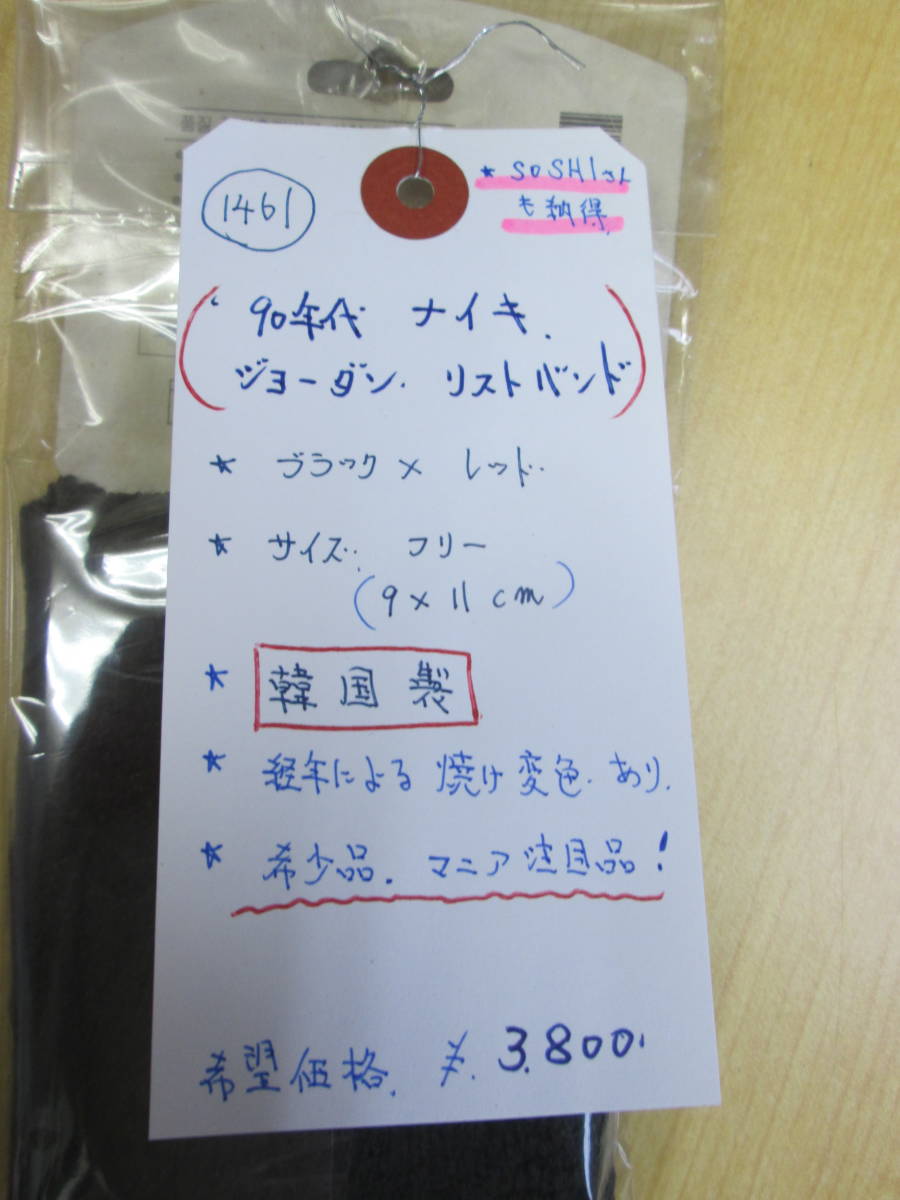 품질
1461
★ SOSHIさん
も納得
'90年代 ナイキ.
ジョーダン. リストバンド
★ ブラック × レッド.
★ サイズ. フリー
(9×11cm)
★ 韓国製
★ 経年による 焼け変色. あり.
★ 希少品. マニア注目品!
希望価格. ¥. 3.800.